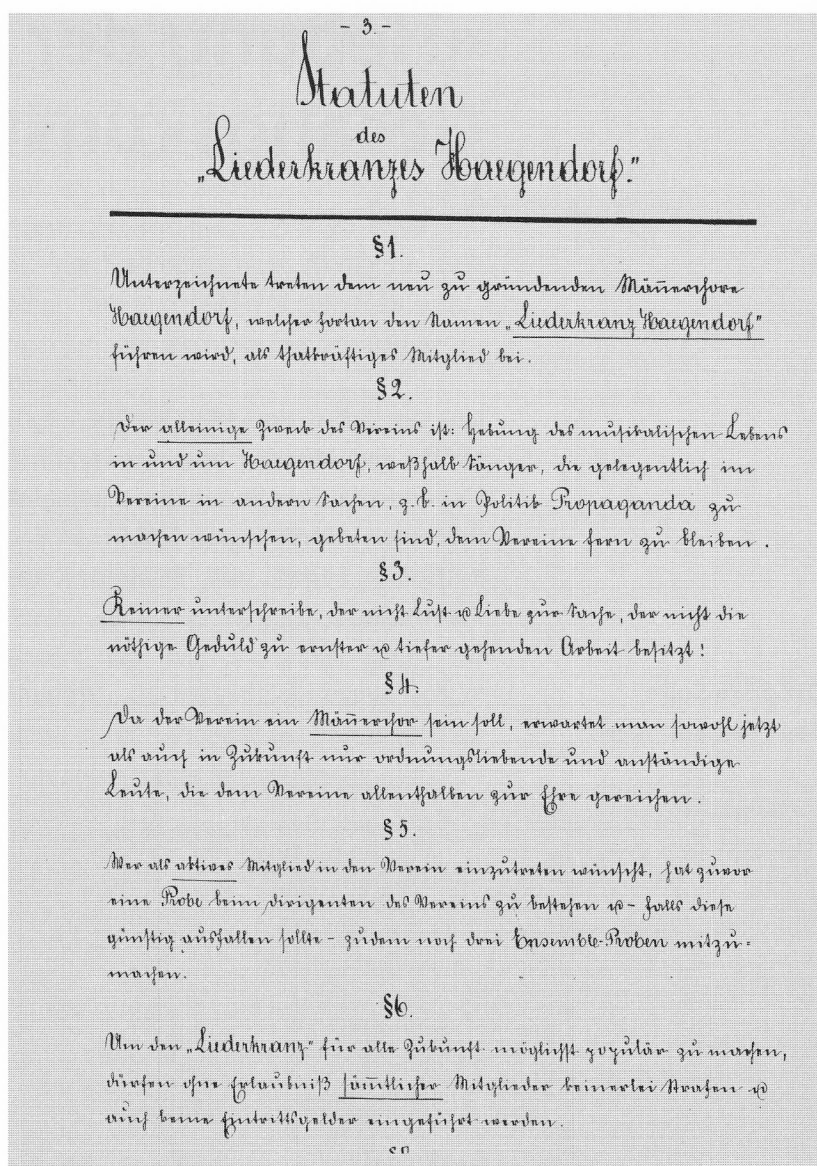 - 3. -
Statuten
des
„Liederkranzes Haegendorf."
§1.
Unterzeichnete treten dem neu zu gründenden Mäñerchore
Haegendorf, welcher fortan den Namen „Liederkranz Haegendorf"
führen wird, als thatkräftiges Mitglied bei.
§2.
Der alleinige Zweck des Vereins ist: Hebung des musikalischen Lebens
in und um Haegendorf, weßhalb Sänger, die gelegentlich im
Vereine in andern Sachen, z. B. in Politik Propaganda zu
machen wünschen, gebeten sind, dem Vereine fern zu bleiben.
§3.
Keiner unterschreibe, der nicht Lust u Liebe zur Sache, der nicht die
nöthige Geduld zu ernster u tiefer gehenden Arbeit besitzt!
§4.
Da der Verein ein Mäñerchor sein soll, erwartet man sowohl jetzt
als auch in Zukunft nur ordnungsliebende und anständige
Leute, die dem Vereine allenthalben zur Ehre gereichen.
§5.
Wer als aktives Mitglied in den Verein einzutreten wünscht, hat zuvor
eine Probe beim Dirigenten des Vereins zu bestehen u - falls diese
günstig ausfallen sollte - zudem noch drei Ensemble-Proben mitzu=
machen.
§6.
Um den „Liederkranz" für alle Zukunft möglichst populär zu machen,
dürfen ohne Erlaubniß sämmtlicher Mitglieder keinerlei Strafen u
auch keine Eintrittsgelder eingeführt werden.